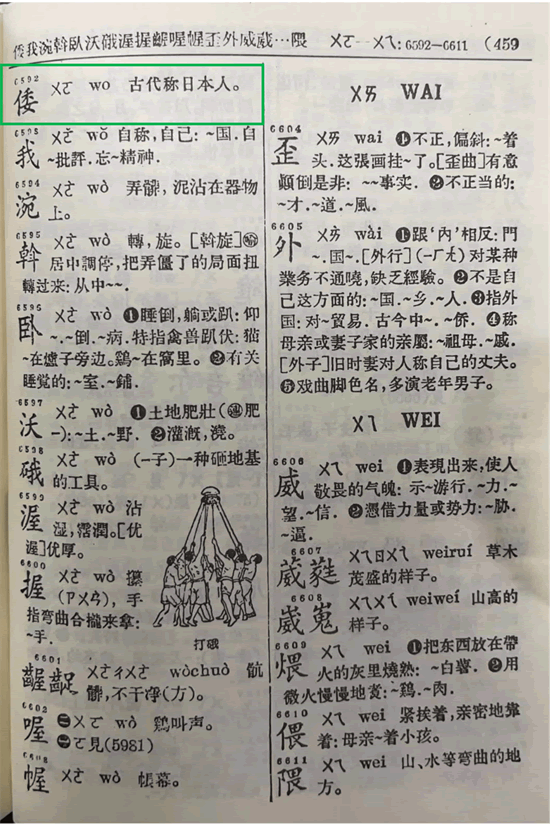 倭我涴斡臥沃硪渥握齷喔幄歪外威葳…隈 ㄨㄛ—ㄨㄟ: 6592—6611 (459
6592
倭 ㄨㄛ wo 古代称日本人。
6593
我 ㄨㄛˇ wǒ 自称,自己: ~国.自
~批評.忘~精神.
6594
涴 ㄨㄛˋ wò 弄髒, 泥沾在器物
上。
6595
斡 ㄨㄛˋ wò 轉,旋。[斡旋]
居中調停,把弄僵了的局面扭
轉过来: 从中~~.
6596
卧 ㄨㄛˋ wò ❶睡倒,躺或趴: 仰
~.~倒.~病.特指禽兽趴伏: 猫
~在爐子旁边。鷄~在窩里。❷有关
睡觉的: ~室.~鋪.
6597
沃 ㄨㄛˋ wò ❶土地肥壯(肥
—): ~土.~野. ❷灌漑,澆。
6598
硪 ㄨㄛˋ wò (—子)一种砸地基
的工具。
6599
渥 ㄨㄛˋ wò 沾
湿,霑潤。[优
渥]优厚。
6600
握 ㄨㄛˋ wò 攥
(ㄗㄨㄢˋ), 手
指弯曲合攏来拿:
~手.
打硪
6601
齷齪 ㄨㄛˋㄔㄨㄛˋ wòchuò 骯
髒,不干净(方)。
6602
喔 ㄨㄛˋ wò 鷄叫声。
ㄛ見(5981)
幄 ㄨㄛˋ wò 帳幕。
ㄨㄞ WAI
6604
歪 ㄨㄞ wai ❶不正,偏斜: ~着
头.这張画挂~了。[歪曲]有意
顚倒是非: ~~事实. ❷不正当的:
~才.~道.~風.
6605
外 ㄨㄞˋ wài ❶跟‘内’相反: 門
~.国~.[外行](—ㄏㄤˊ)对某种
業务不通曉,缺乏經驗。❷不是自
己这方面的: ~国.~乡.~人. ❸指外
国: 对~貿易. 古今中~.~侨. ❹称
母亲或妻子家的亲屬: ~祖母.~戚.
[外子]旧时妻对人称自己的丈夫。
❺戏曲脚色名,多演老年男子。
ㄨㄟ WEI
6606
威 ㄨㄟ wei ❶表現出来,使人
敬畏的气魄: 示~游行.~力.~
望.~信. ❷凭借力量或势力: ~胁.
~逼.
6607
葳蕤 ㄨㄟㄖㄨㄟˊ weiruí 草木
茂盛的样子。
6608
崴嵬 ㄨㄟㄨㄟˊ weiweí 山高的
样子。
6609
煨 ㄨㄟ wei ❶把东西放在帶
火的灰里燒熟: ~白薯. ❷用
微火慢慢地煮: ~鷄.~肉.
6610
偎 ㄨㄟ wei 紧挨着,亲密地靠
着: 母亲~着小孩。
6611
隈 ㄨㄟ wei 山、水等弯曲的地
方。